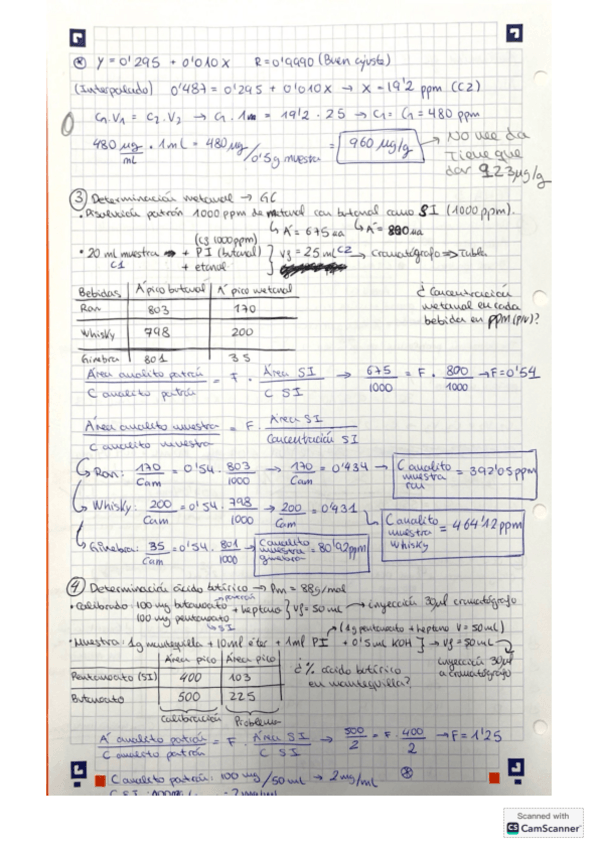 ⊛ y = 0'295 + 0'010x    R = 0'9990 (Buen ajuste)
(Interpolado) 0'487 = 0'295 + 0'010x → x = 19'2 ppm (C2)
C1·V1 = C2·V2 → C1·1 = 19'2 · 25 → C1 = 480 ppm
480 µg/mL · 1mL = 480 µg/0'5g muestra = 960 µg/g → No me da
Tiene que
dar 923 µg/g
③ Determinación metanol → GC
• Disolución patrón 1000 ppm de metanol con butanol como SI (1000 ppm).
↳ A = 675 ua ↳ A = 800 ua
• 20 ml muestra + PI (butanol) (C 1000 ppm) + etanol } Vf = 25 mL C2 → Cromatógrafo ⇒ Tabla
C1
Bebidas | A pico butanol | A pico metanol
Ron | 803 | 170
Whisky | 798 | 200
Ginebra | 801 | 35
¿Concentración
metanol en cada
bebida en ppm (p/v)?
Área analito patrón / C analito patrón = F · Área SI / C SI → 675/1000 = F · 800/1000 → F = 0'54
Área analito muestra / C analito muestra = F · Área SI / Concentración SI
↳ Ron: 170/Cam = 0'54 · 803/1000 → 170/Cam = 0'434 → C analito muestra ron = 392'05 ppm
↳ Whisky: 200/Cam = 0'54 · 798/1000 → 200/Cam = 0'431 ↳ C analito muestra whisky = 464'12 ppm
↳ Ginebra: 35/Cam = 0'54 · 801/1000 → C analito muestra ginebra = 80'92 ppm
④ Determinación ácido butírico → Pm = 88 g/mol
• Calibrado: 100 mg butanoato patrón + heptano } Vf = 50 mL → inyección 30 µl cromatógrafo
100 mg pentanoato
↳ SI
• Muestra: 1g mantequilla + 10 ml éter + 1 ml PI (1g pentanoato + heptano V = 50 mL) + 0'5 mL KOH } → Vf = 50 mL
inyección 30 µl
a cromatógrafo
Área pico | Área pico
Pentanoato (SI) | 400 | 103
Butanoato | 500 | 225
Calibración Problema
¿% ácido butírico
en mantequilla?
A analito patrón / C analito patrón = F · Área SI / C SI → 500/2 = F · 400/2 → F = 1'25
C analito patrón: 100 mg/50 mL → 2 mg/mL ⊛
Scanned with
CS CamScanner